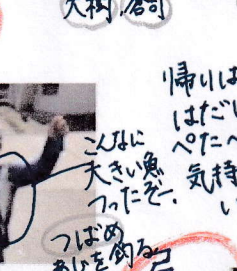 大樹、倉司
帰りは
はだし
ぺたぺ
気持
い
こんなに
大きい魚
つったぞー。
つばめ
あじを釣る